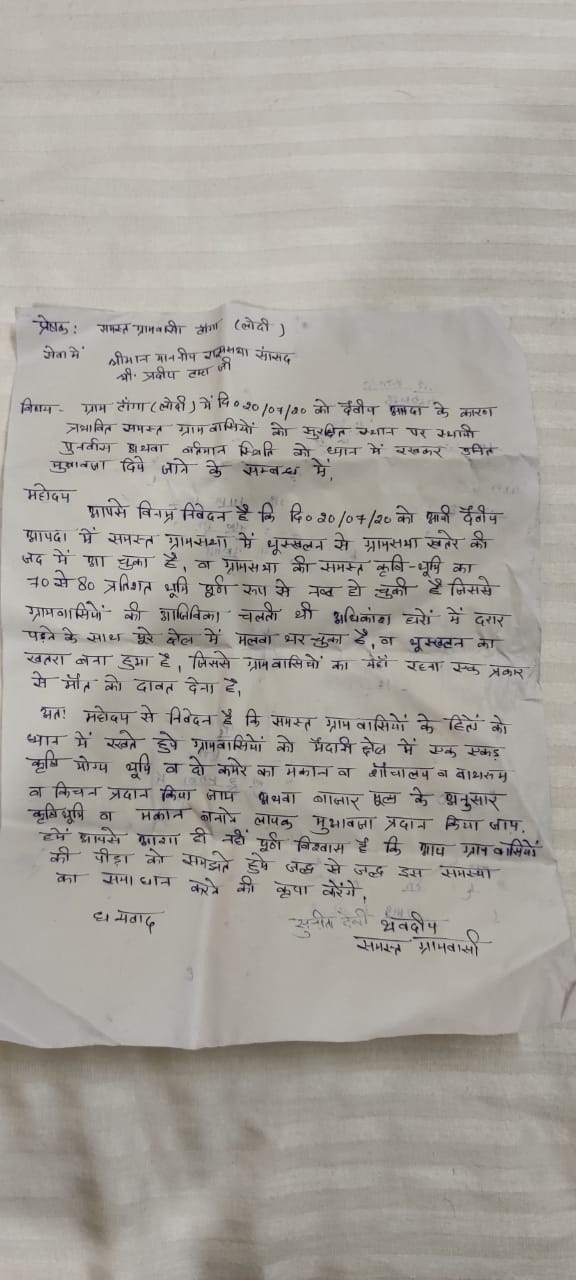 प्रेषक: समस्त ग्रामवासी टांगा (लोदी)
सेवा में श्रीमान माननीय राज्यसभा सांसद
श्री. प्रदीप टम्टा जी
विषय - ग्राम टांगा (लोदी) में दि० 20/07/20 को दैवीय आपदा के कारण
प्रभावित समस्त ग्रामवासियों को सुरक्षित स्थान पर स्थायी
पुनर्वास अथवा वर्तमान स्थिति को ध्यान में रखकर उचित
मुआवजा दिये जाने के सम्बन्ध में,
महोदय
आपसे विनम्र निवेदन है कि दि० 20/07/20 को आयी दैवीय
आपदा में समस्त ग्रामसभा में भूस्खलन से ग्रामसभा खतरे की
जद में आ चुका है, व ग्रामसभा की समस्त कृषि-भूमि का
70 से 80 प्रतिशत भूमि पूर्ण रूप से नष्ट हो चुकी है जिससे
ग्रामवासियों की आजिविका चलती थी अधिकांश घरों में दरार
पड़ने के साथ पूरे क्षेत्र में मलवा भर चुका है, व भूस्खलन का
खतरा बना हुआ है, जिससे ग्रामवासियों का यहाँ रहना एक प्रकार
से मौत को दावत देना है,
अतः महोदय से निवेदन है कि समस्त ग्रामवासियों के हितों को
ध्यान में रखते हुये ग्रामवासियों को मैदानी क्षेत्र में एक एकड़
कृषि योग्य भूमि व दो कमरे का मकान व शौचालय व बाथरूम
व किचन प्रदान किया जाय अथवा बाजार मूल्य के अनुसार
कृषि भूमि व मकान बनाने लायक मुआवजा प्रदान किया जाय.
हमें आपसे आशा ही नहीं पूर्ण विश्वास है कि आप ग्रामवासियों
की पीड़ा को समझते हुये जल्द से जल्द इस समस्या
का समाधान करने की कृपा करेंगे,
धन्यवाद
सुनीता देवी भवदीय
समस्त ग्रामवासी